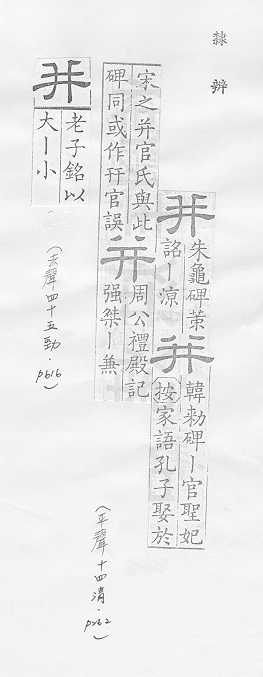 隸辨
并
朱龜碑策
詔丨涼
并
韓勑碑丨官聖妃
按家語孔子娶於
宋之并官氏與此
碑同或作幵官誤
并
周公禮殿記
强桀丨兼
(平聲十四清.p262)
并
老子銘以
大丨小
(去聲四十五勁.p616)